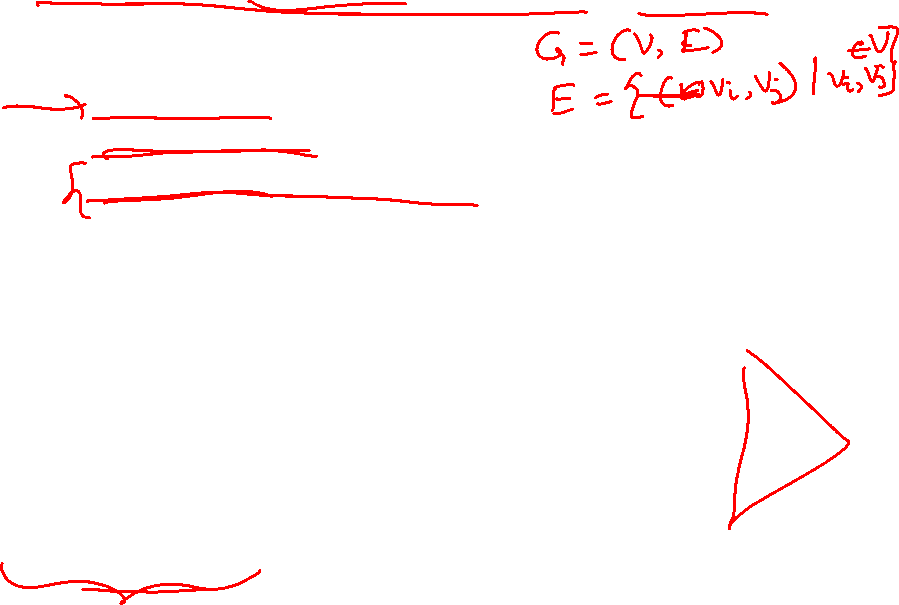 G = (V, E)
E = {(vi, vj) | vi, vj ∈ V}